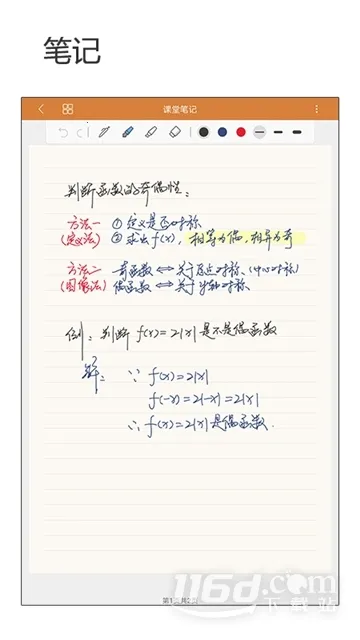 笔记
课堂笔记
判断函数的奇偶性:
方法一 ① 定义是否对称
(定义法) ② 求出f(x),相等为偶,相异为奇
方法二 奇函数 ⇔ 关于原点对称(中心对称)
(图像法) 偶函数 ⇔ 关于y轴对称
例:判断 f(x)=2|x| 是不是偶函数
解: ∵ f(x)=2|x|
f(-x)=2|-x|=2|x|
∴ f(x)=2|x| 是偶函数.
116d.com
下载站